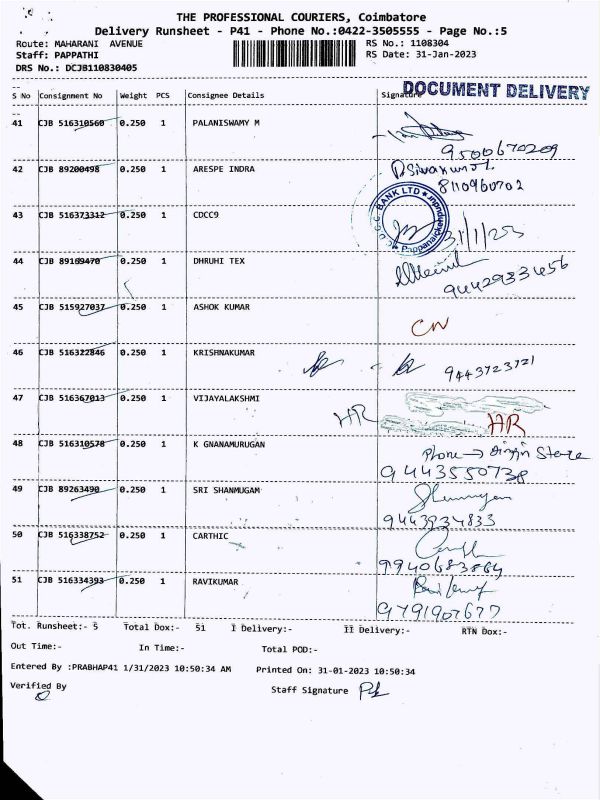 THE PROFESSIONAL COURIERS, Coimbatore
Delivery Runsheet - P41 - Phone No.:0422-3505555 - Page No.:5
Route: MAHARANI AVENUE RS No.: 1108304
Staff: PAPPATHI RS Date: 31-Jan-2023
DRS No.: DCJB110830405
DOCUMENT DELIVERY
S No Consignment No Weight PCS Consignee Details Signature
41 CJB 516310560 0.250 1 PALANISWAMY M
9500670209
42 CJB 89200498 0.250 1 ARESPE INDRA
8110960702
43 CJB 516373312 0.250 1 CDCC9
BANK LTD
31/1/23
44 CJB 89169470 0.250 1 DHRUHI TEX
9442933456
45 CJB 515927037 0.250 1 ASHOK KUMAR
CN
46 CJB 516322846 0.250 1 KRISHNAKUMAR
9443723721
47 CJB 516367013 0.250 1 VIJAYALAKSHMI
HR HR
48 CJB 516310578 0.250 1 K GNANAMURUGAN
Phone →
9443550738
49 CJB 89263490 0.250 1 SRI SHANMUGAM
9443934833
50 CJB 516338752 0.250 1 CARTHIC
9940683864
51 CJB 516334393 0.250 1 RAVIKUMAR
9791907677
Tot. Runsheet:- 5 Total Dox:- 51 I Delivery:- II Delivery:- RTN Dox:-
Out Time:- In Time:- Total POD:-
Entered By :PRABHAP41 1/31/2023 10:50:34 AM Printed On: 31-01-2023 10:50:34
Verified By Staff Signature